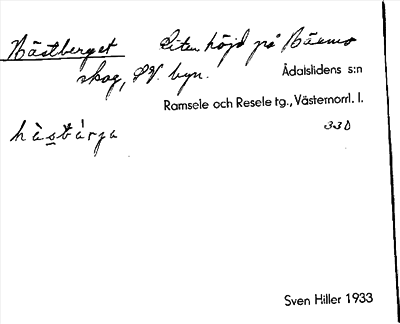 Hästberget Liten höjd på Näsmo
skog, SV. byn.
Ådalslidens s:n
Ramsele och Resele tg., Västernorrl. l.
hästbärga
33D
Sven Hiller 1933